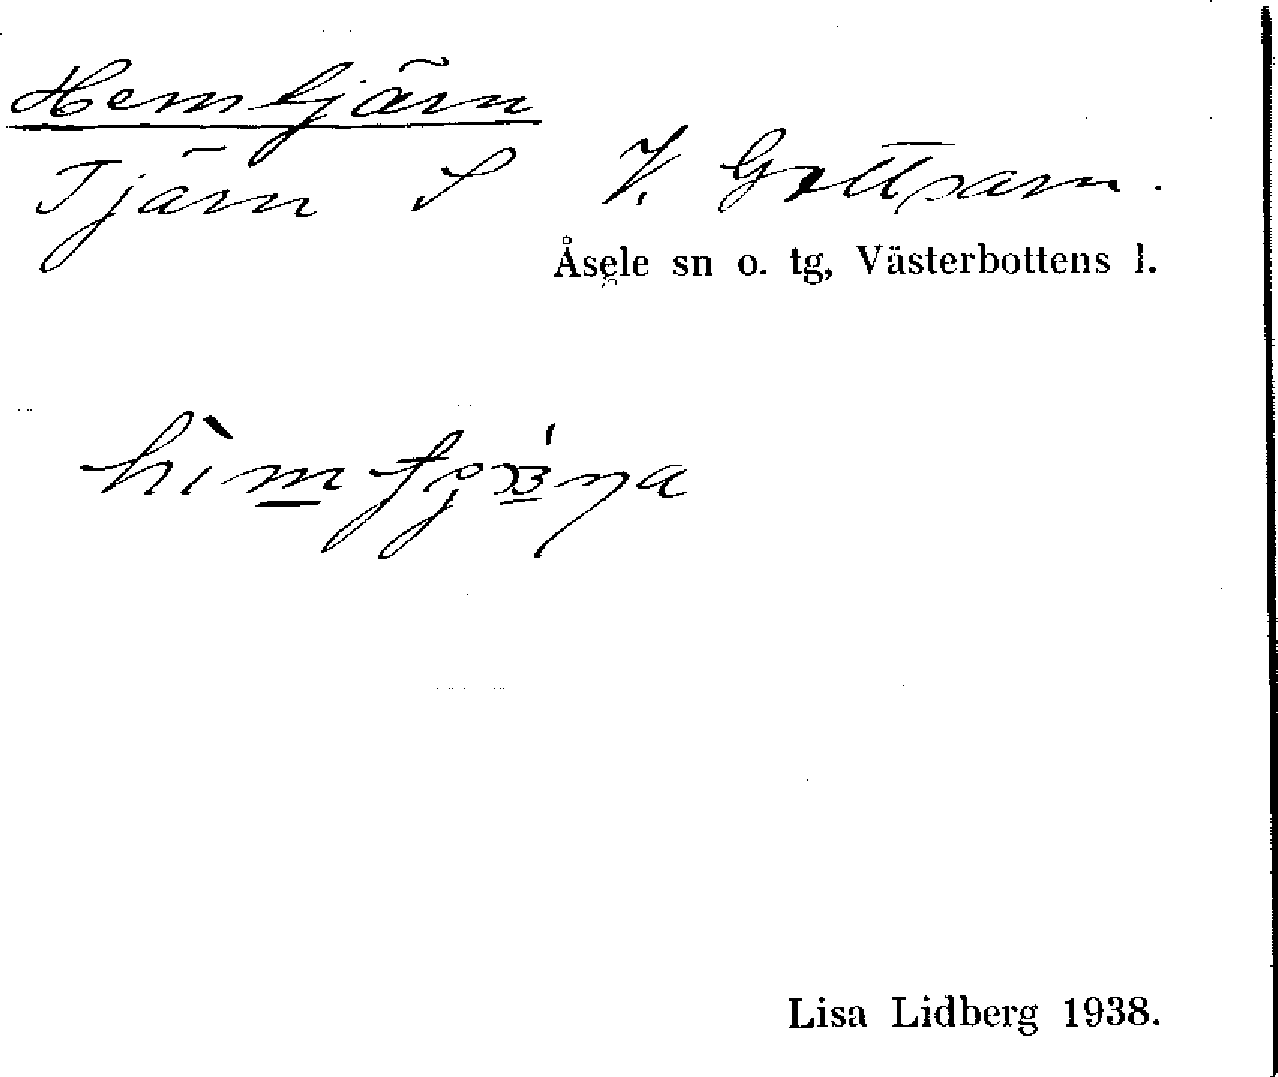 Hemtjärn
Tjärn S V. Gottsarn.
Åsele sn o. tg, Västerbottens l.
Lisa Lidberg 1938.